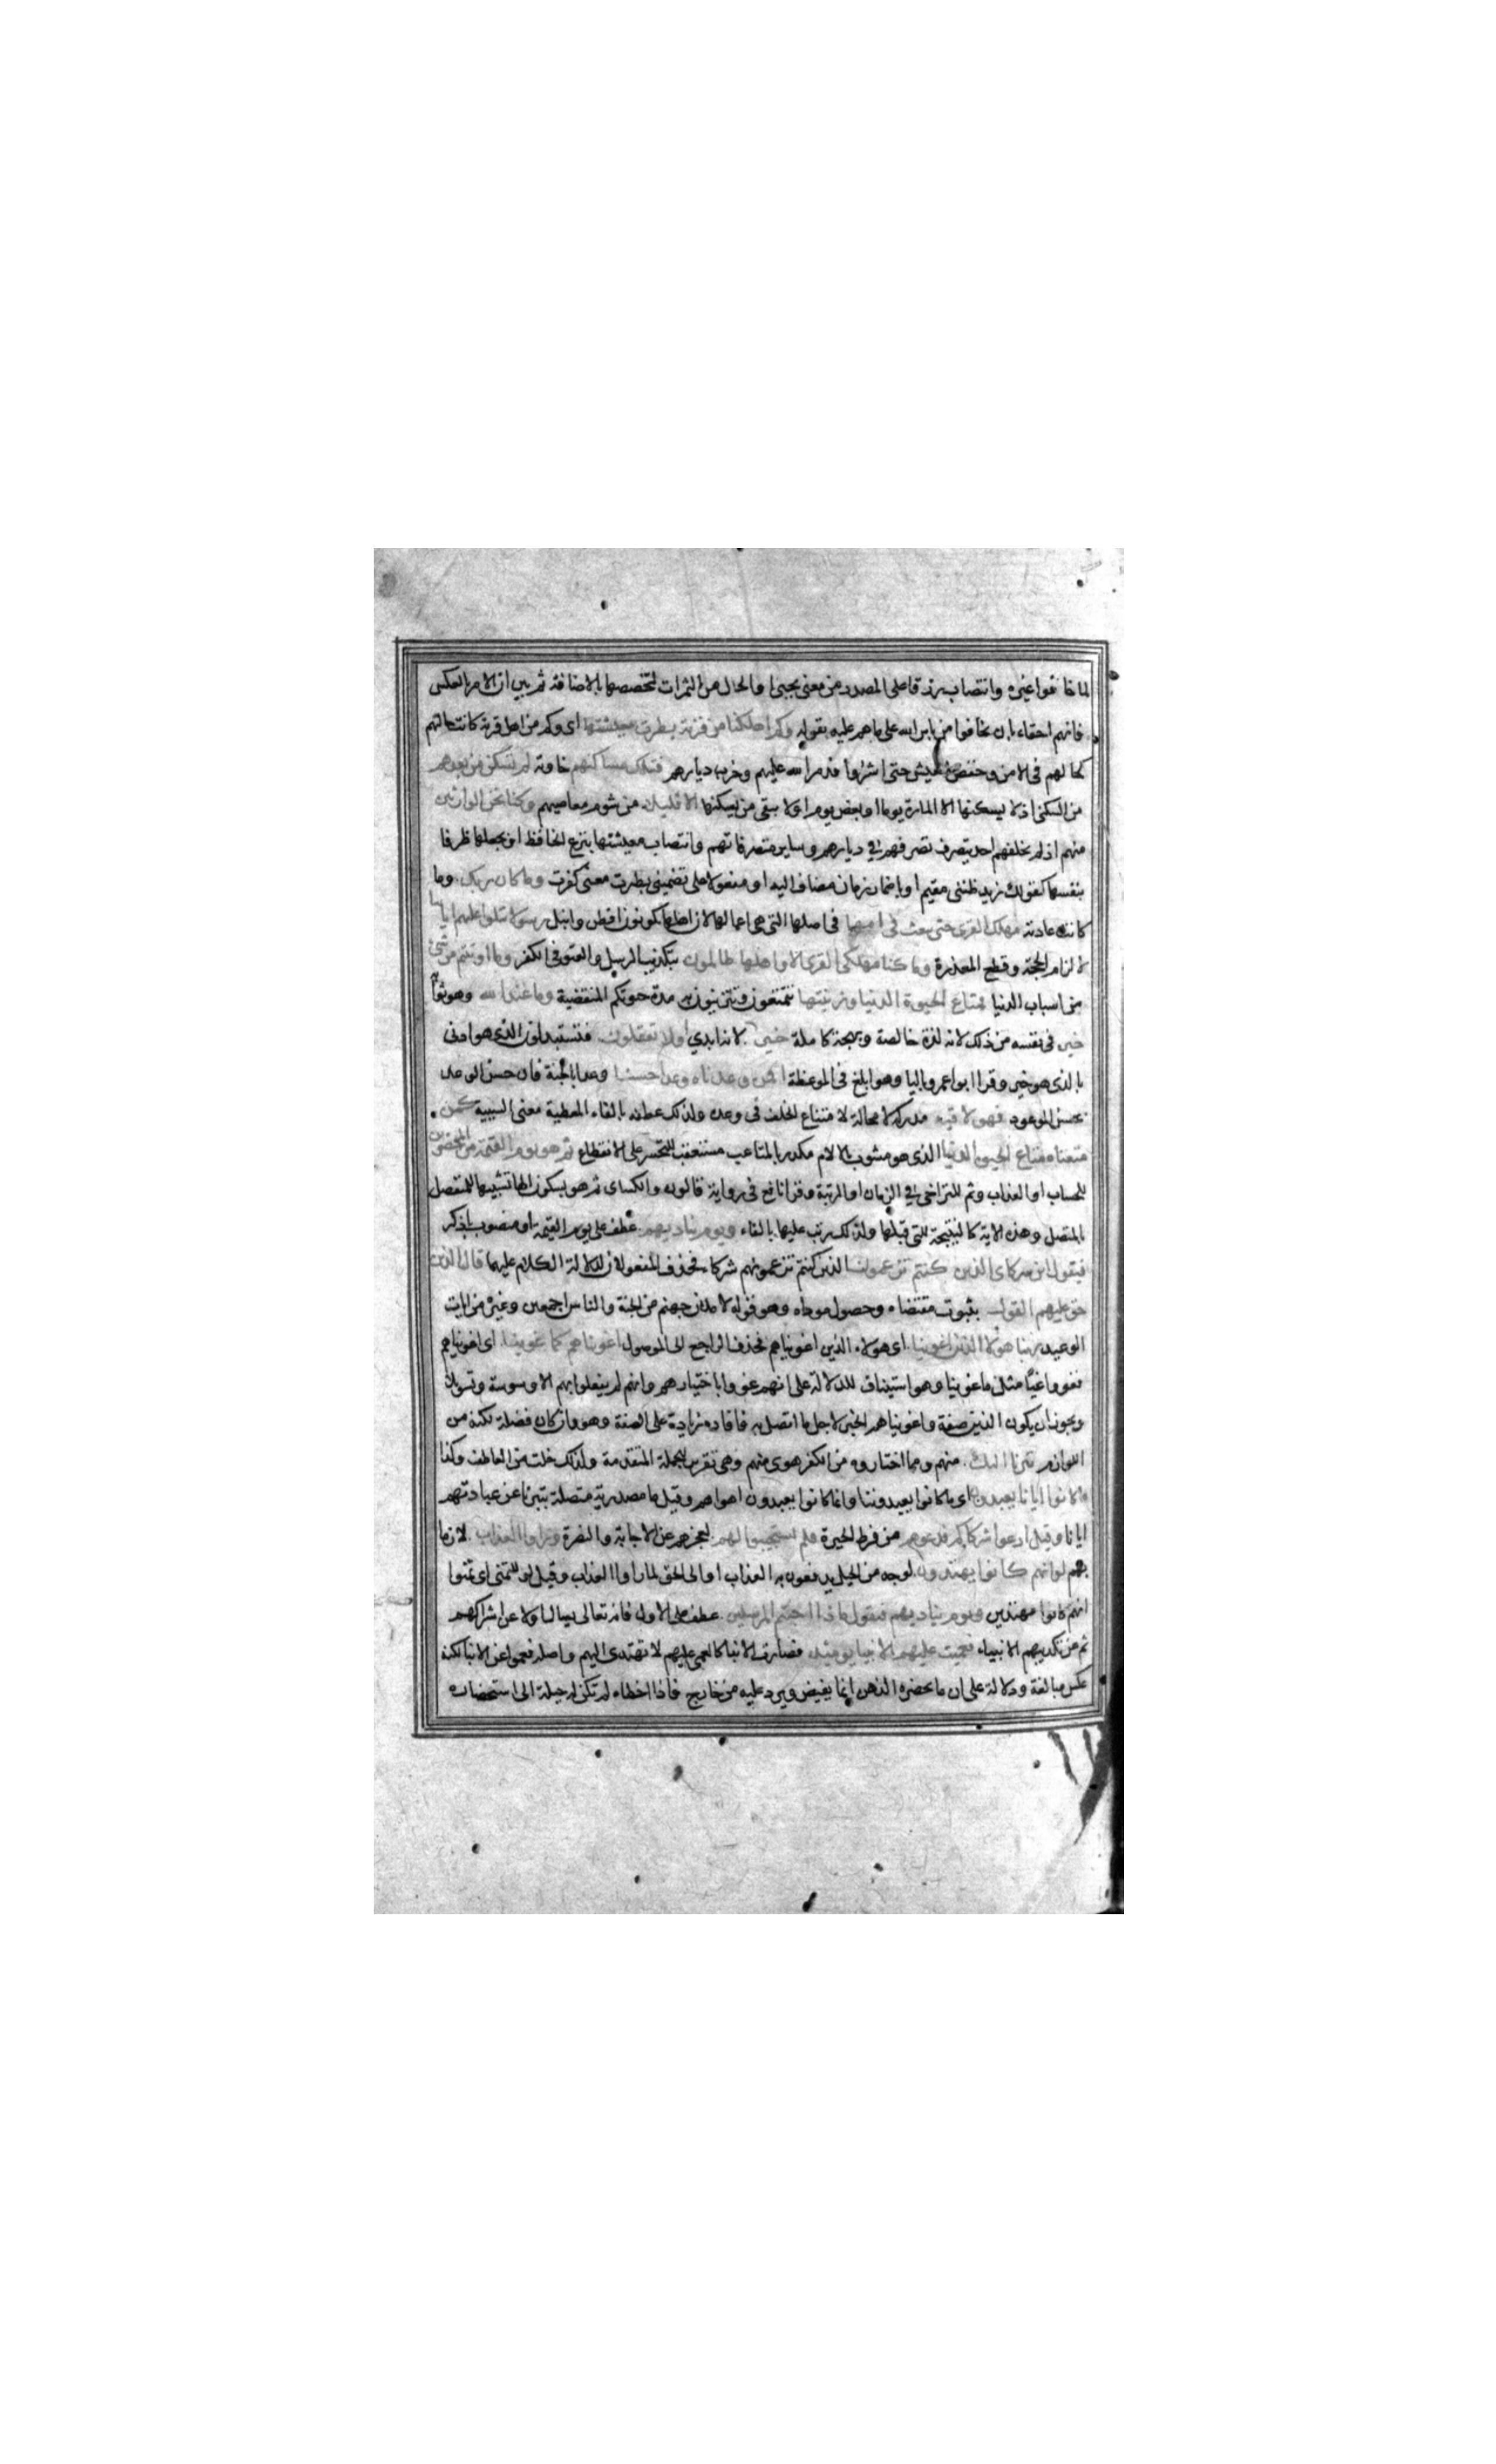 لما خافوا غيره وانتصاب رزقا على المصدر من معنى يجبى او الحال من الثمرات لتخصصها بالاضافة ثم بين ان الامر بالعكس
فانهم احقاء بان يخافوا من باس الله على ما هم عليه بقوله وكم اهلكنا من قرية بطرت معيشتها اى وكم من اهل قرية كانت حالتهم
كحالهم فى الامن وخفض العيش حتى اشروا فدمر الله عليهم وخرب ديارهم فتلك مساكنهم خاوية لم تسكن من بعدهم
من السكنى اذ لا يسكنها الا المارة يوما او بعض يوم او لا يبقى من يسكنها الا قليلا من شوم معاصيهم وكنا نحن الوارثين
منهم اذ لم يخلفهم احد يتصرف تصرفهم في ديارهم وساير متصرفاتهم وانتصاب معيشتها بنزع الخافظ او بجعلها ظرفا
بنفسها كقولك زيد ظنى مقيم او باضمار زمان مضاف اليه او مفعولا على تضمين بطرت معنى كفرت وما كان ربك وما
كانت عادته مهلك القرى حتى يبعث فى امها فى اصلها التى هى اعمالها لان اهلها يكونون افطن وانبل رسولا يتلوا عليهم اياتنا
لالزام الحجة وقطع المعذرة وما كنا مهلكى القرى الا واهلها ظالمون بتكذيب الرسل والعتو فى الكفر وما اوتيتم من شئ
من اسباب الدنيا فمتاع الحيوة الدنيا وزينتها تتمتعون وتتزينون به مدة حيوتكم المنقضية وما عند الله وهو ثوابه
خير فى نفسه من ذلك لانه لذة خالصة وبهجة كاملة خير لانه ابدي افلا تعقلون فتستبدلون الذى هو ادنى
بالذى هو خير وقرا ابو عمرو باليا وهو ابلغ فى الموعظة افمن وعدناه وعدا حسنا وعدا بالجنة فان حسن الوعد
بحسن الموعود فهو لاقيه مدركه لا محالة لامتناع الخلف فى وعده ولذلك عطفه بالفاء المعطية معنى السببية كمن
متعناه متاع الحيوة الدنيا الذى هو مشوب بالالام مكدر بالمتاعب مستعقب للتحسر على الانقطاع ثم هو يوم القيمة من المحضرين
للحساب او العذاب وثم للتراخى في الزمان او الرتبة وقرا نافع فى رواية قالون والكسائى ثم هو بسكون الها تشبيها للمنفصل
بالمتصل وهذه الاية كالنتيجة للتى قبلها ولذلك رتب عليها بالفاء ويوم يناديهم عطف على يوم القيمة او منصوب باذكر
فيقول اين شركاى الذين كنتم تزعمون الذين كنتم تزعمونهم شركاء فحذف المفعولان لدلالة الكلام عليهما قال الذين
حق عليهم القول بثبوت مقتضاه وحصول موداه وهو قوله لاملان جهنم من الجنة والناس اجمعين وغيره من ايات
الوعيد ربنا هولا الذين اغوينا اى هولاء الذين اغويناهم فحذف الراجع الى الموصول اغويناهم كما غوينا اى اغويناهم
فغووا غيا مثل ما غوينا وهو استيناف للدلالة على انهم غووا باختيارهم وانهم لم يفعلوا بهم الا وسوسة وتسويلا
ويجوز ان يكون الذين صفة واغويناهم الخبر لاجل ما اتصل به فافاده زيادة على الصفة وهو وان كان فضلة لكنه من
اللوازم تبرانا اليك منهم ومما اختاروه من الكفر هوى منهم وهى تقرير للجملة المتقدمة ولذلك خلت من العاطف وكذا
ما كانوا ايانا يعبدون اى ما كانوا يعبدوننا وانما كانوا يعبدون اهواهم وقيل ما مصدرية متصلة بتبرانا عن عبادتهم
ايانا وقيل ادعوا شركاكم فدعوهم من فرط الحيرة فلم يستجيبوا لهم لعجزهم عن الاجابة والنصرة وراوا العذاب لازما
بهم لو انهم كانوا يهتدون لوجه من الحيل يدفعون به العذاب او الى الحق لما راوا العذاب وقيل لو للتمنى اى تمنوا
انهم كانوا مهتدين ويوم يناديهم فيقول ماذا اجبتم المرسلين عطف على الاول فانه تعالى يسال اولا عن اشراكهم
ثم عن تكذيبهم الانبياء فعميت عليهم الانبا يومئذ فصارت الانبا كالعمى عليهم لا تهتدى اليهم واصله فعموا عن الانبا لكنه
عكس مبالغة ودلالة على ان ما يحضره الذهن انما يفيض ويرد عليه من خارج فاذا اخطاه لم تكن له حيلة الى استحضاره